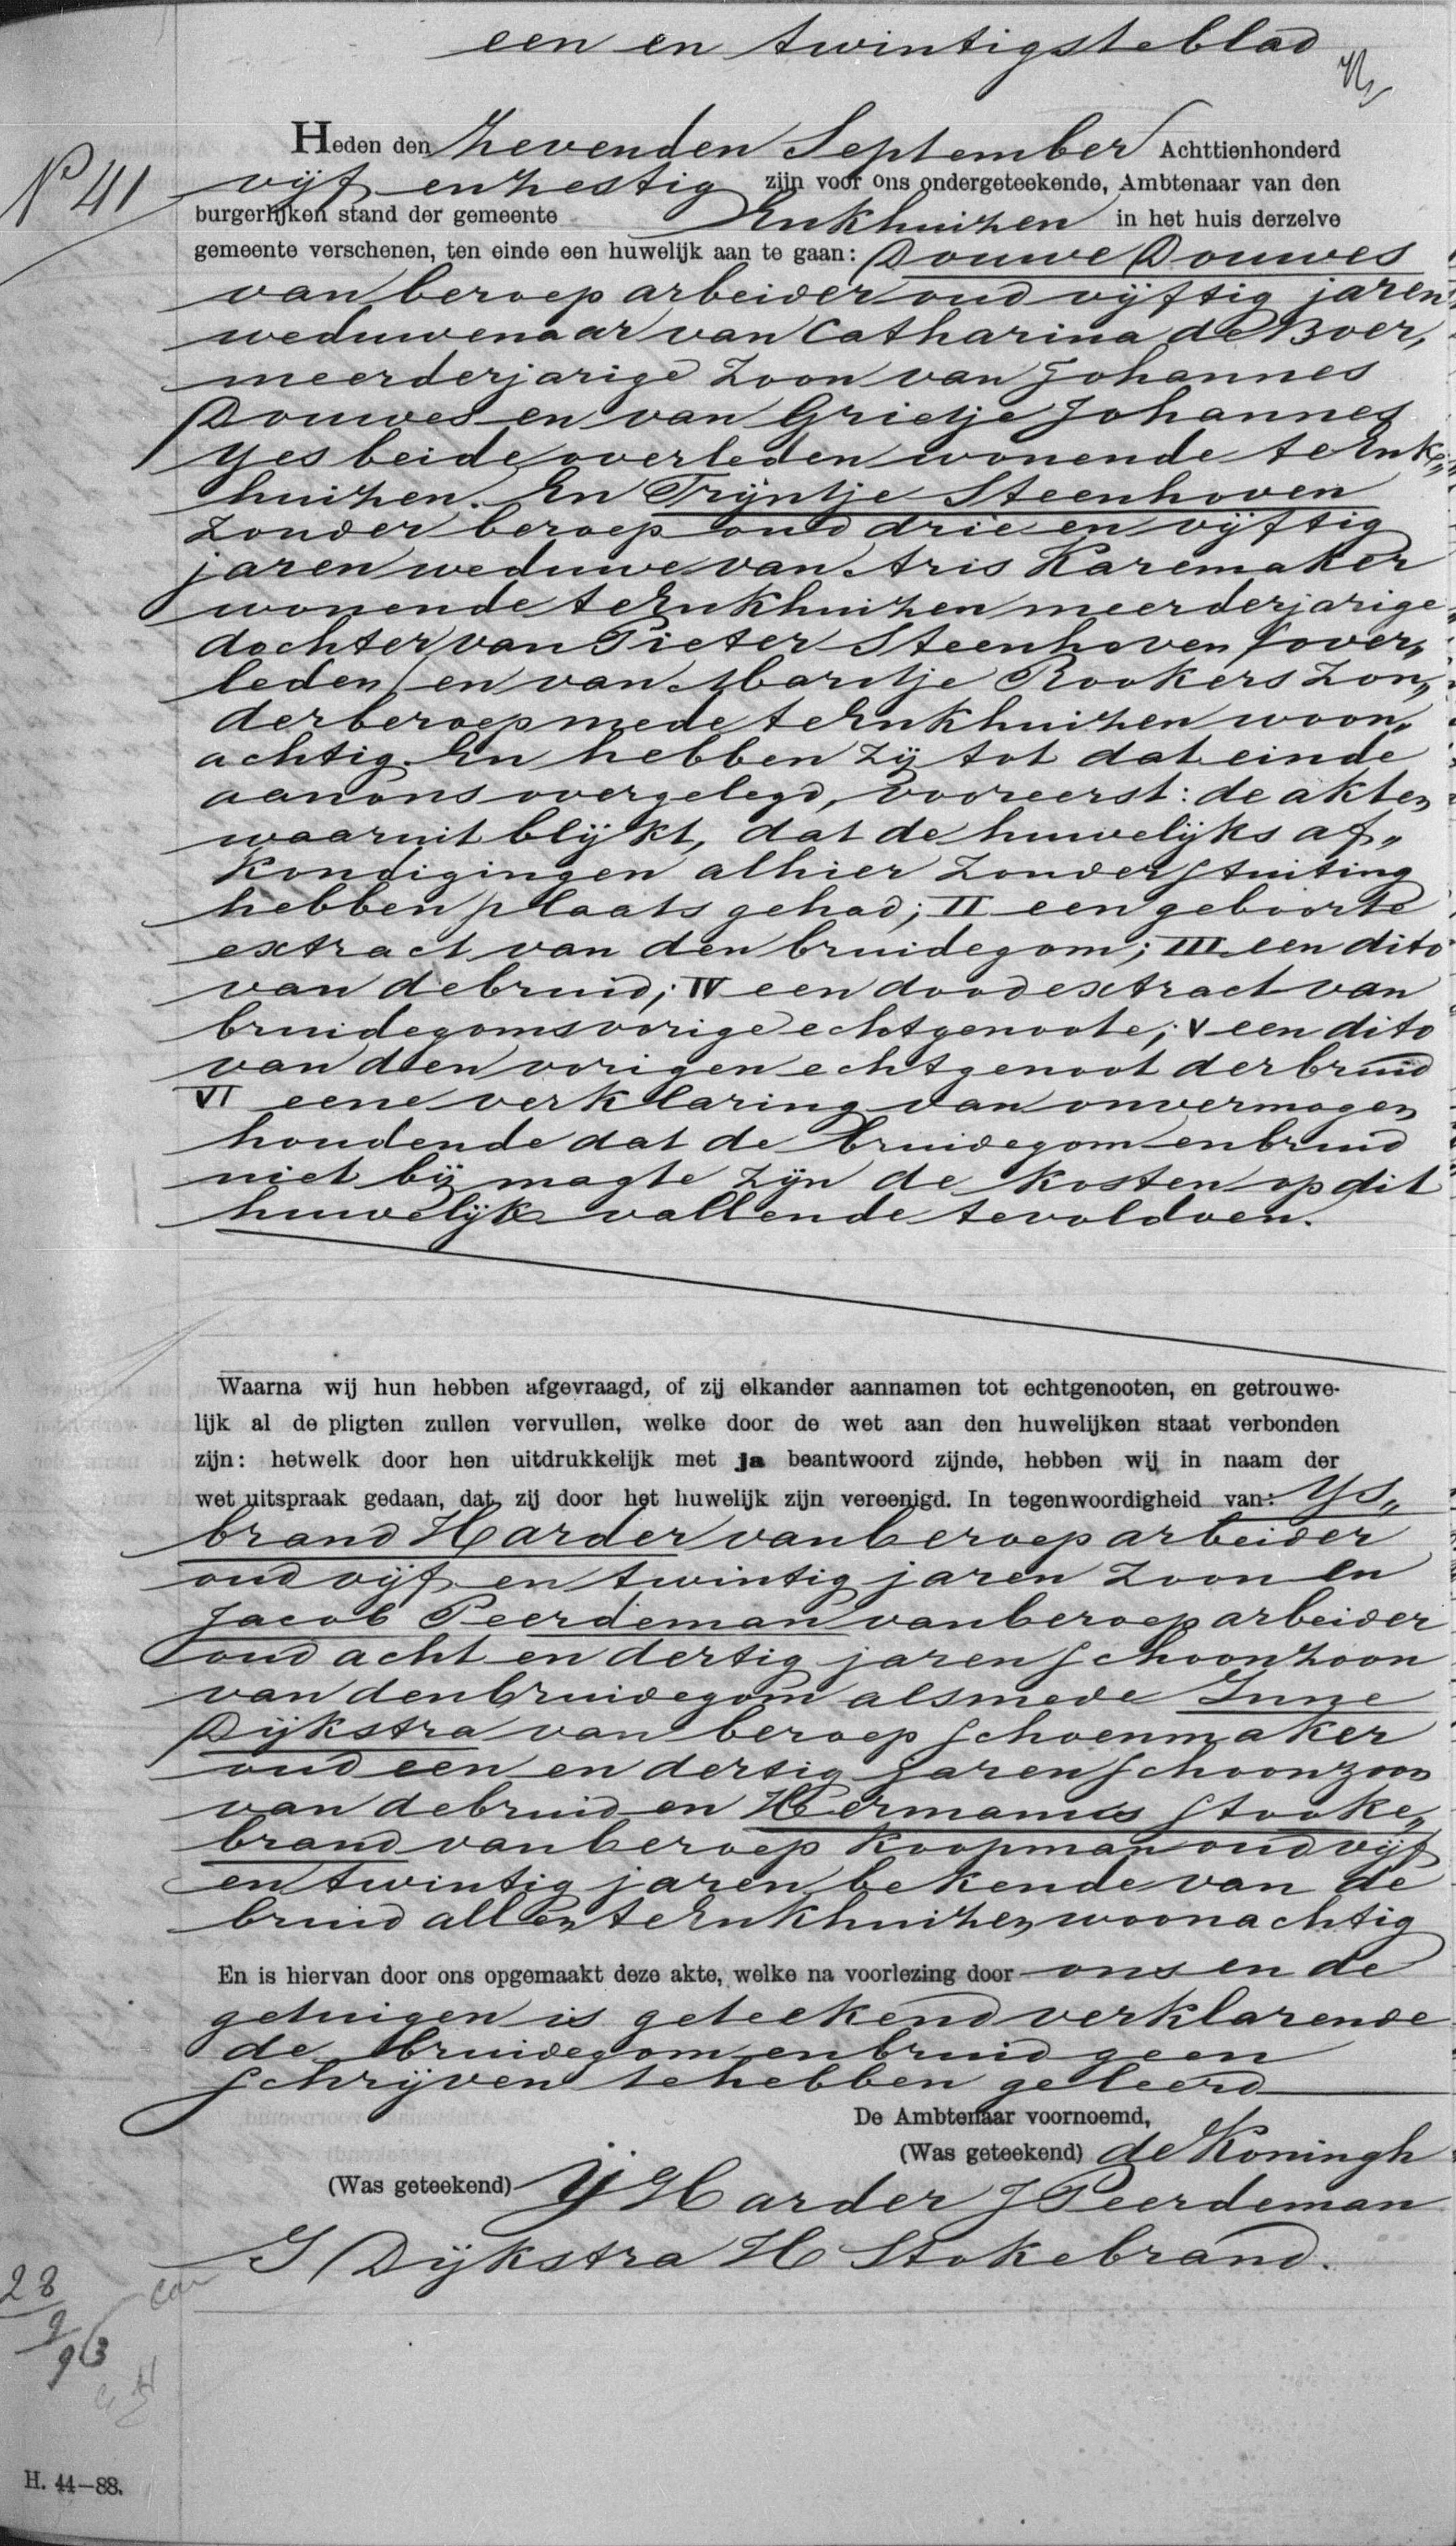 een en twintigste blad
No 41
Heden den zevenden September Achttienhonderd
vijf en zestig zijn voor ons ondergeteekende, Ambtenaar van den
burgerlijken stand der gemeente Enkhuizen in het huis derzelve
gemeente verschenen, ten einde een huwelijk aan te gaan: Douwe Douwes
van beroep arbeider oud vijftig jaren
weduwenaar van Catharina de Boer,
meerderjarige zoon van Johannes
Douwes en van Grietje Johannes
Yes beide overleden wonende te Enk„
huizen. En Trijntje Steenhoven
zonder beroep oud drie en vijftig
jaren weduwe van Aris Karemaker
wonende te Enkhuizen meerderjarige
dochter van Pieter Steenhoven (over„
leden) en van Maritje Rookers zon„
der beroep mede te Enkhuizen woon„
achtig. En hebben zij tot dat einde
aan ons overgelegd, vooreerst: de akten
waaruit blijkt, dat de huwelijks af„
kondigingen alhier zonder stuiting
hebben plaats gehad; II een geboorte
extract van den bruidegom; III een dito
van de bruid; IV een dood extract van
bruidegoms vorige echtgenoote; V een dito
van den vorigen echtgenoot der bruid
VI eene verklaring van onvermogen
houdende dat de bruidegom en bruid
niet bij magte zijn de kosten op dit
huwelijk vallende te voldoen.
Waarna wij hun hebben afgevraagd, of zij elkander aannamen tot echtgenooten, en getrouwe-
lijk al de pligten zullen vervullen, welke door de wet aan den huwelijken staat verbonden
zijn: hetwelk door hen uitdrukkelijk met ja beantwoord zijnde, hebben wij in naam der
wet uitspraak gedaan, dat zij door het huwelijk zijn vereenigd. In tegenwoordigheid van: Ys„
brand Harder van beroep arbeider
oud vijf en twintig jaren zoon en
Jacob Peerdeman van beroep arbeider
oud acht en dertig jaren schoonzoon
van den bruidegom alsmede Inne
Dijkstra van beroep schoenmaker
oud een en dertig jaren schoonzoon
van de bruid en Hermanus Stooke„
brand van beroep koopman oud vijf
en twintig jaren bekende van de
bruid allen te Enkhuizen woonachtig
En is hiervan door ons opgemaakt deze akte, welke na voorlezing door ons en de
getuigen is geteekend verklarende
de bruidegom en bruid geen
schrijven te hebben geleerd
De Ambtenaar voornoemd,
(Was geteekend) de Koningh
(Was geteekend) IJ Harder J Peerdeman
I Dijkstra H Stokebrand.
28
9
93
H. 44—88.